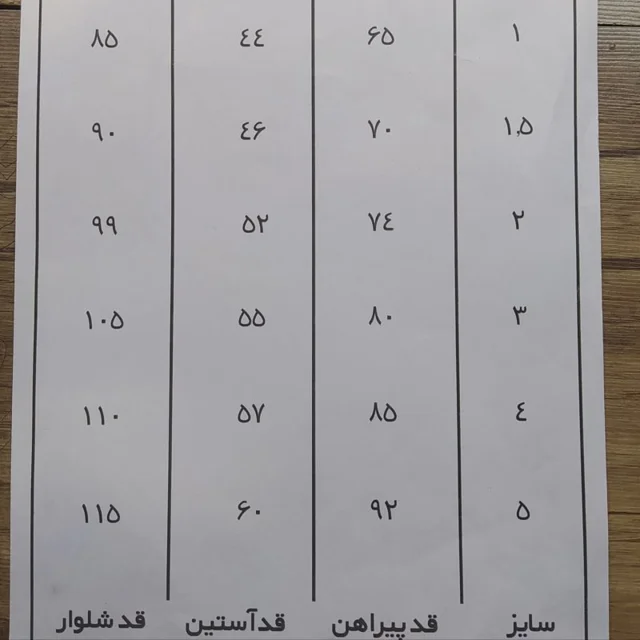 ۱ ۶۵ ٤٤ ۸۵
۱٫۵ ۷۰ ٤۶ ۹۰
۲ ۷٤ ۵۲ ۹۹
۳ ۸۰ ۵۵ ۱۰۵
٤ ۸۵ ۵۷ ۱۱۰
۵ ۹۲ ۶۰ ۱۱۵
سایز قد پیراهن قدآستین قد شلوار